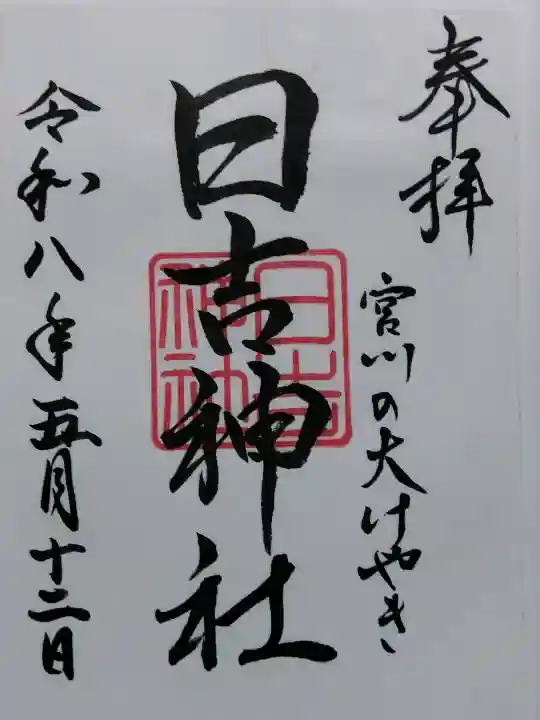 奉拝
宮川の大けやき
日吉神社
日吉神社
令和八年五月十二日